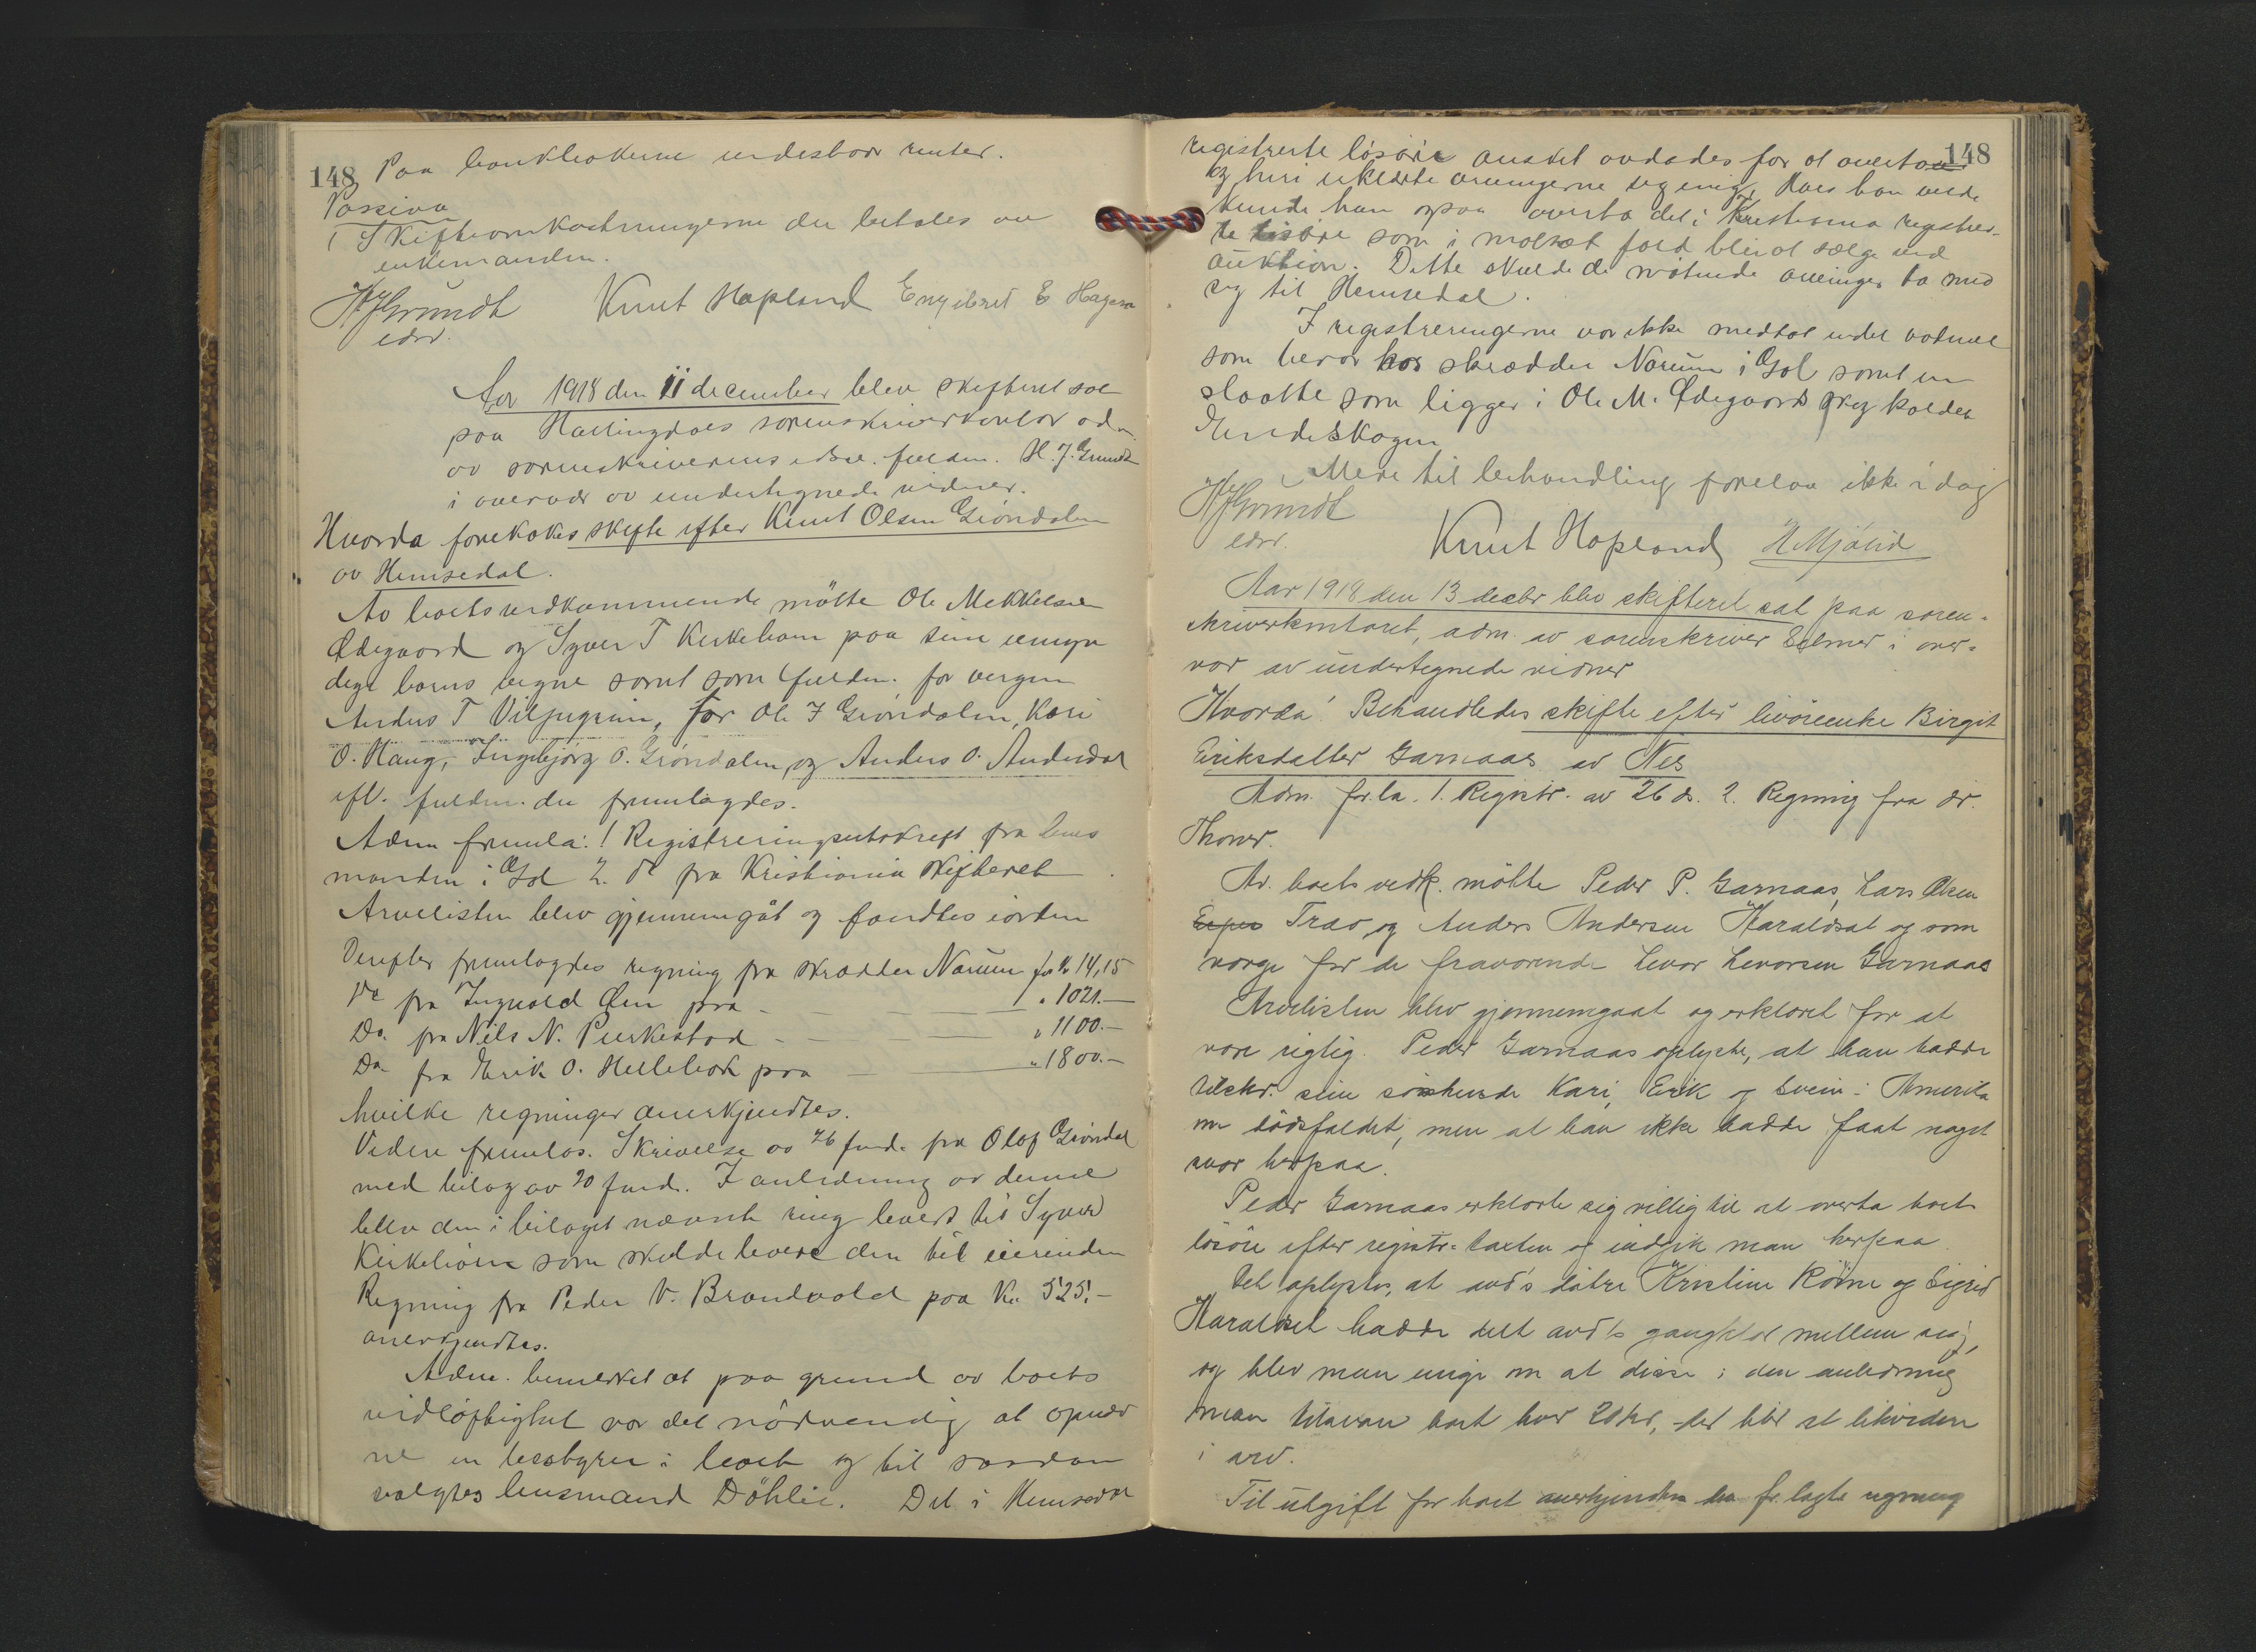 148 Paa bankbøkerne undestaar renter.
Passiva
1 Skifteomkostningerne der betales av
enkemanden.
HJGrundt Knut Hapland Engebret E Hagen
edsv.
Aar 1918 den 11 december blev skifteret sat
paa Hallingdals sorenskriverkontor adm.
av sorenskriverens edsv. fuldm. H. J. Grundt
i overvær av undertegnede vidner.
Hvorda foretokes skifte efter Knut Olsen Grøndalen
av Hemsedal.
Av boets vedkommende møtte Ole Mekkelsen
Ødegaard og Syver T Kirkebøen paa sine umyn
dige barns vegne samt som fuldm. for vergen
Anders T Viljugrein, for Ole I Grøndalen, Kari
O. Haug, Ingebjørg O. Grøndalen, og Anders O. Anderdal
eft. fuldm. der fremlagdes.
Adm fremla: 1 Registreringsutskrift fra lens
manden i Gol 2. do fra Kristiania skifteret
Arvelisten blev gjennemgåt og fandtes iorden
Derefter fremlagdes regning fra skrædder Narum for kr 14,15
Do fra Ingvald Øen paa - " 1021.-
Do. fra Nils N. Purkestad - " 1100.-
Do fra Erik O. Hulebak paa " 1800.-
hvilke regninger anerkjendtes.
Videre fremlas. Skrivelse av 26 f.md. fra Olaf Grøndal
med bilag av 20 f.md. I anledning av denne
blev den i bilaget nævnte ring levert til Syver
Kirkebøen som skulde levere den til eierinden
Regning fra Peder V. Brandvold paa Kr. 525.-
anerkjendtes.
Adm. bemerket at paa grund av boets
vidløftighet var det nødvendig at opnæv
ne en bestyrer i boet og til saadan
valgtes lensmand Døhlie. Det i Hemsedal
148
registrerte løsøre ansket avdødes far at overta
og heri erklærte arvingerne sig enig. Hvis han vilde
kunde han ogsaa overta det i Kristiania registrer-
te løsøre som i motsat fald blev at sælge ved
auktion. Dette skulde de møtende arvinger ta med
sig til Hemsedal.
I registreringerne var ikke medtat endel vadmel
som beror hos skrædder Narum i Gol samt en
slaatte som ligger i Ole M. Ødegaards skog kaldet
Endeskogen
Mere til behandling forelaa ikke i dag
HJGrundt
edsv. Knut Hapland H Mjølid
Aar 1918 den 13 decbr blev skifteret sat paa soren-
skriverkontoret, adm. av sorenskriver Eckmer i over-
vær av undertegnede vidner
Hvorda! Behandledes skifte efter livøreenke Birgit
Eriksdatter Garnaas av Nes
Adm. fr.la. 1. Registr. av 26 ds. 2. Regning fra dr.
Thoner.
Av boets vedk. møtte Peder P. Garnaas, Lars Olsen
Trao og Anders Andersen Haraldset og som
værge for de fraværende Levor Levorsen Garnaas
Arvelisten blev gjennemgaat og erklæret for at
være rigtig. Peder Garnaas oplyste, at han hadde
tilskr. sine søskende Kari, Erik og Svein i Amerika
om dødsfaldet, men at han ikke hadde faat noget
svar herpaa.
Peder Garnaas erklærte sig villig til at overta boets
løsøre efter registr.taxten og indgik man herpaa
Det oplystes, at avd's døtre Kristine Røine og Sigrid
Haraldset hadde delt avd's gangklær mellem sig,
og blev man enige om at disse i den anledning
tilsvarer boet hver 20 kr, det blir at likvidere
i arv.
Til utgift for boet anerkjendes den fr.lagte regning